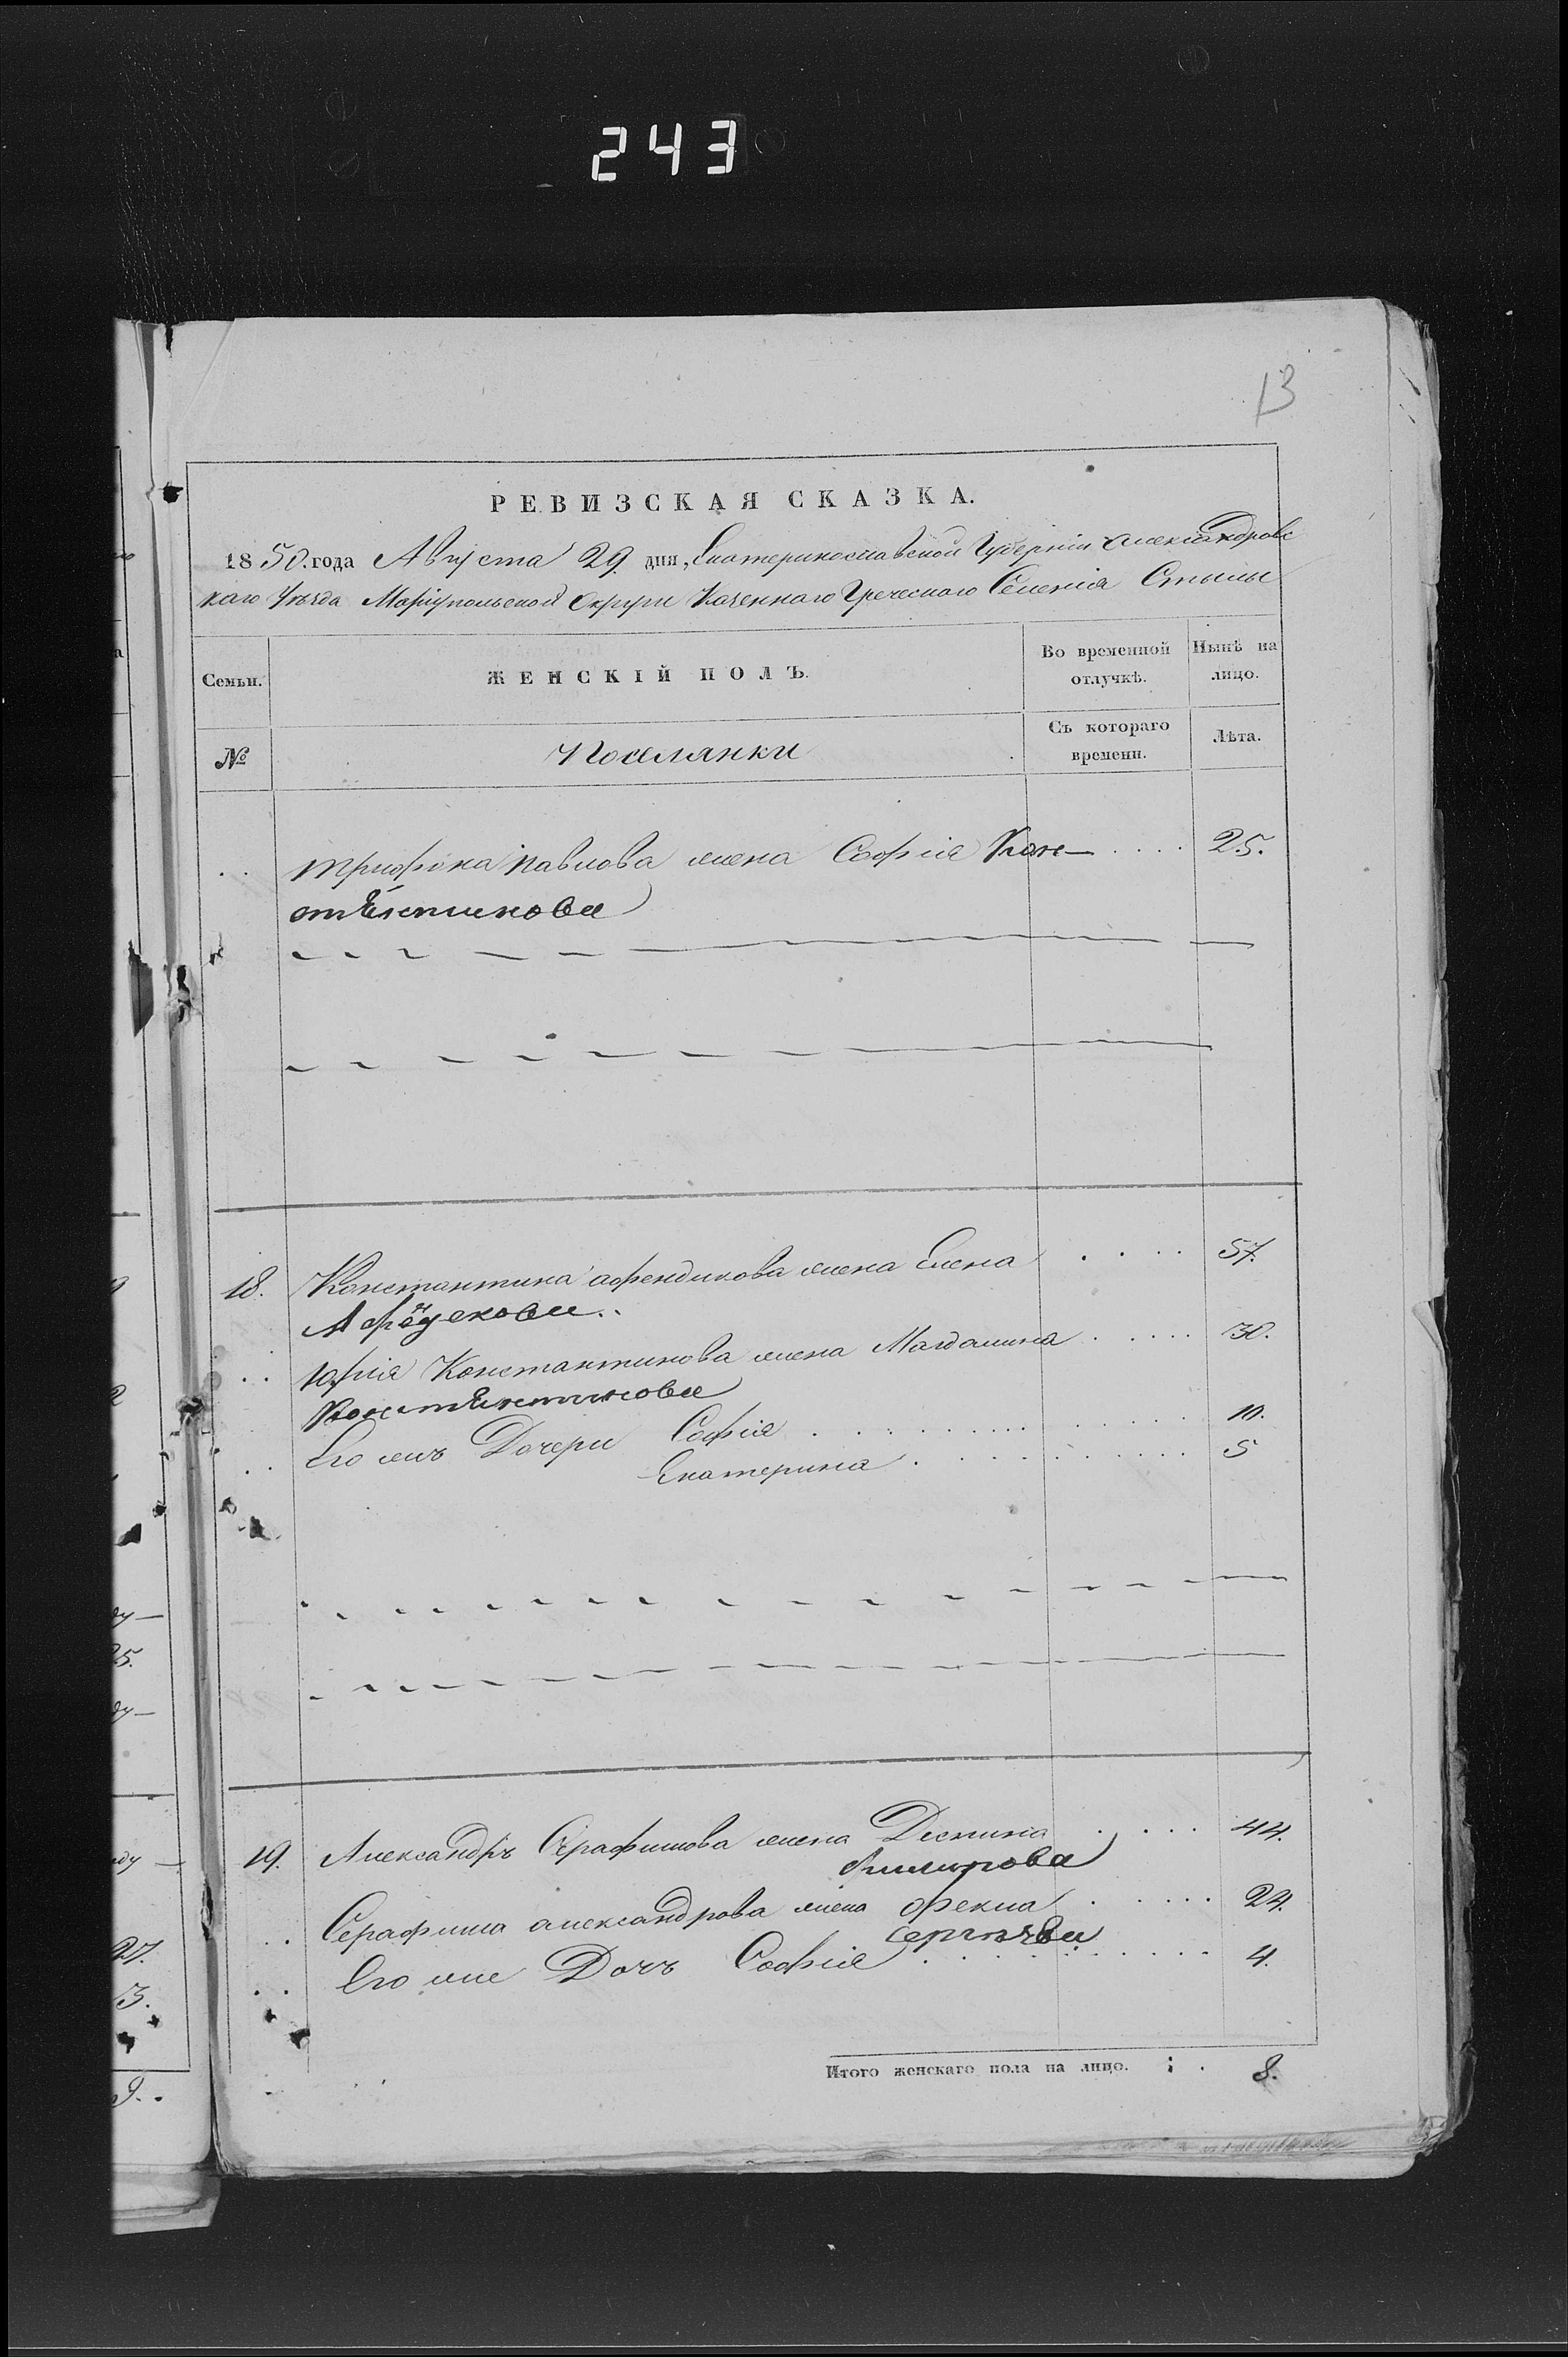 243
13
РЕВИЗСКАЯ СКАЗКА.
1850. года Августа 29. дня, Екатеринославской Губерніи Александровс
каго Уѣзда Маріупольской Округи Казеннаго Греческаго Селенія Стылы
Семьи. ЖЕНСКІЙ ПОЛЪ. Во временной отлучкѣ. Нынѣ на лицо.
№ Поселянки Съ котораго времени. Лѣта.
. . Трифона Павлова жена Софія Кон— . . . . 25.
стантинова
18. Константина Афендикова жена Елена . . . . 57.
. . Юрія Константинова жена Магдалина . . . . . 30.
Константинова
. . Его жъ Дочери Софія . . . . . . . . 10.
Екатерина . . . . . . . . 5
19. Александръ Серафимова жена Деспина . . . . 44.
. . Серафима Александрова жена Фекла . . . . . 24.
. . Его же Дочь Софія . . . . . . . . 4.
Итого женскаго пола на лицо. : . 8.
25.
27.
3.
9. .